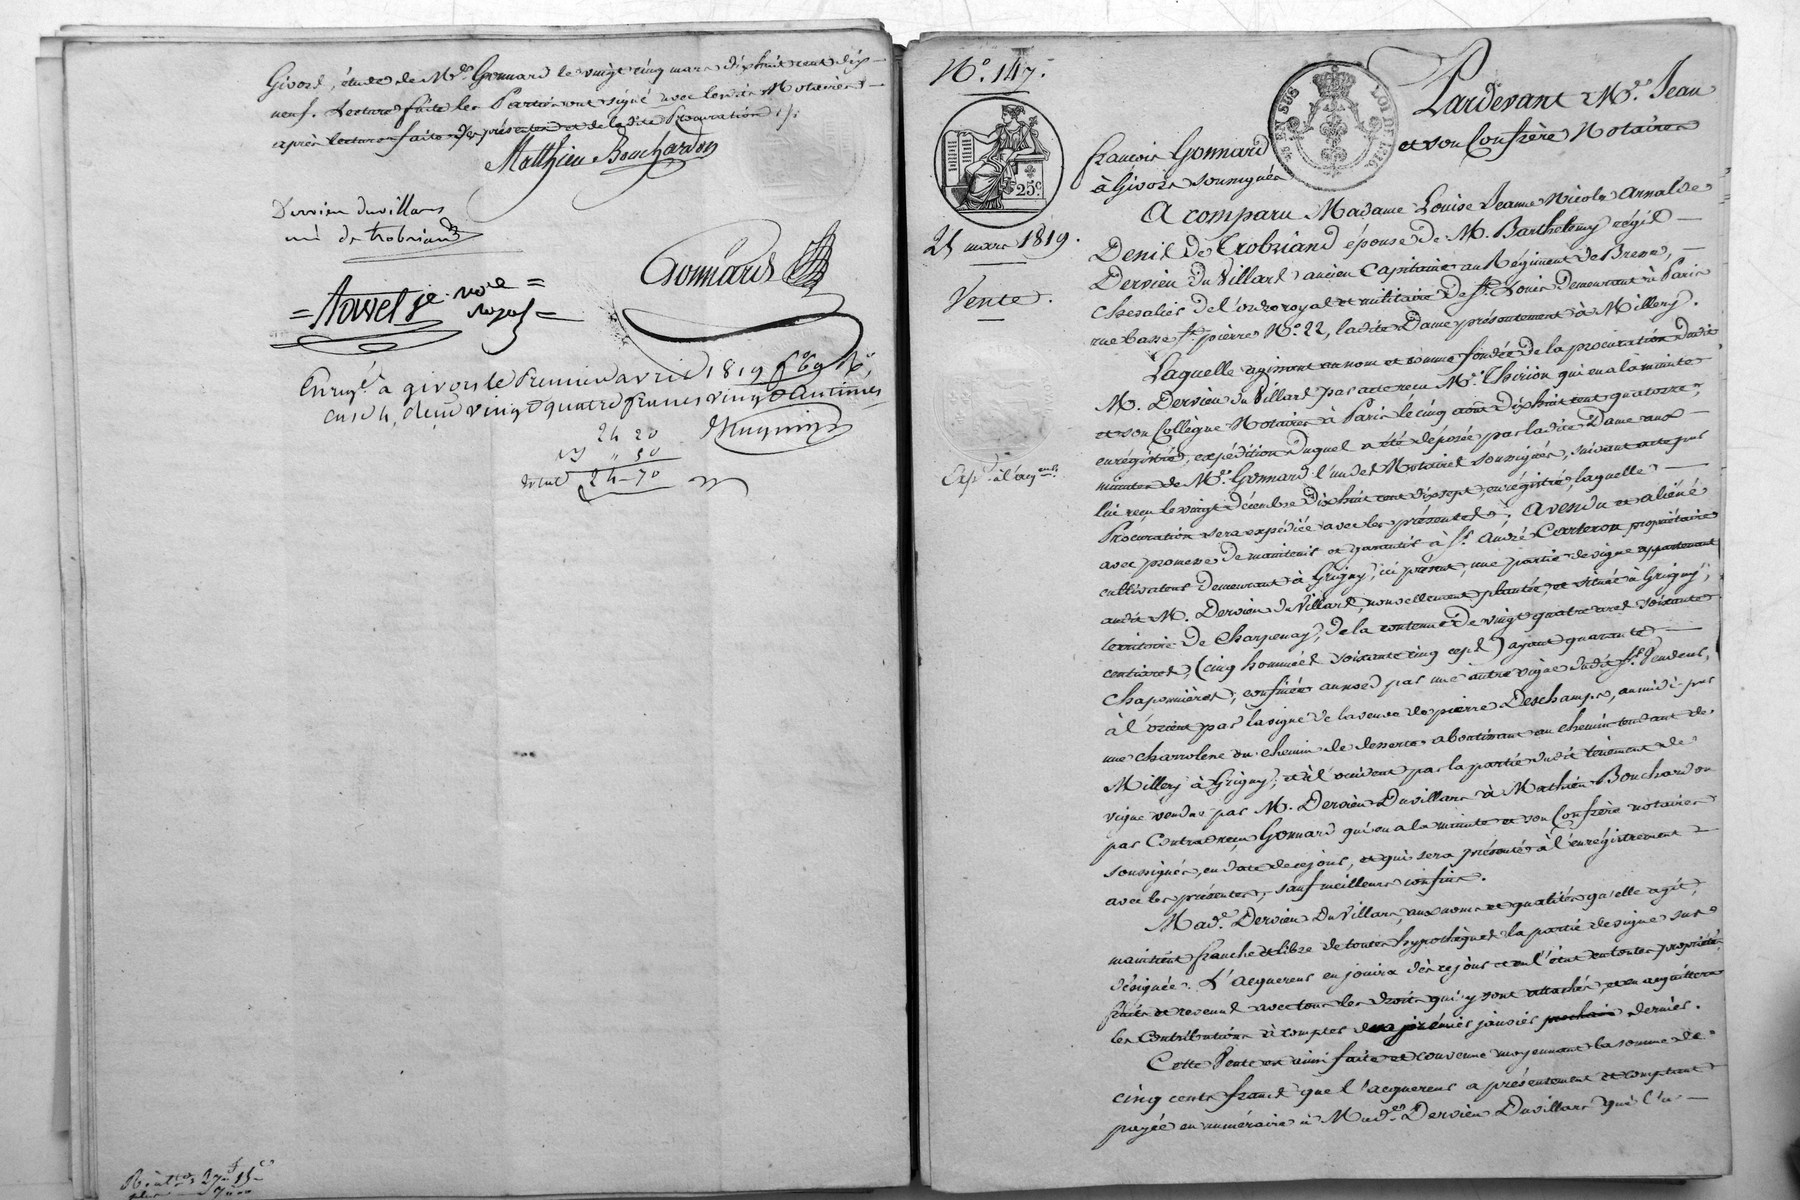 Givors, étude de Me Gonnard le vingt cinq mars dix huit cent dix
neuf. Lecture faite les Parties ont signé avec lesdits Notaires
après lecture faite des présentes et de ladite Procuration ./.
Matthieu Bouchardon
Dervieu duvillars
née de trobriand
Gonnard
= Navet je. nore =
royal =
Enregé à givors le Premier avril 1819 fo 69 Ro
case 4, reçu vingt quatre francs vingt Centimes
24 20
" 50
total 24 - 70
27 15
No. 147.
EN SUS
LOI DE 1816
25c
25 mars 1819.
Vente.
Exp. à l'acqeur.
Pardevant Me. Jean
françois Gonnard et son Confrère Notaires
à Givors soussignés
A comparu Madame Louise Jeanne Nicole Arnalde
Denis de Trobriand épouse de M. Barthelemy régis
Dervieu du Villars ancien Capitaine au Régiment de Bresse,
Chevalier de l'ordre royal et militaire de St. Louis demeurant à Paris
rue basse St. pierre No. 22, ladite Dame présentement à Millery.
Laquelle agissant au nom et comme fondée de la procuration dudit
M. Dervieu du Villars par acte reçu Me. Thirion qui en a la minute
et son Collègue Notaires à Paris le cinq août dix huit cent quatorze,
enregistré, expédition duquel a été déposée par ladite Dame aux
minutes de Me. Gonnard l'un des Notaires soussignés, suivant acte par
lui reçu le vingt décembre dix huit cent dix sept, enregistré, laquelle
Procuration sera expédiée avec les présentes; a vendu et aliéné
avec promesse de maintenir et garantir à Sr. André Carteron propriétaire
cultivateur demeurant à Grigny, ici présent, une partie de vigne appartenant
audit M. Dervieu du Villars, nouvellement plantée, et située à Grigny,
territoire de Charpenay, de la contenue de vingt quatre ares soixante
centiares, (cinq hommées soixante cinq cept.) ayant quarante
chaponnières, confinée au nord par une autre vigne dudit Sr. Vendeur,
à l'orient par la vigne de la veuve de pierre Deschamps, au midi par
une charrolière ou chemin de desserte aboutissant au chemin tendant de
Millery à Grigny, et à l'occident par la partie dudit tènement de
vigne vendue par M. Dervieu Duvillars à Mathieu Bouchardon
par Contrat reçu Gonnard qui en a la minute et son Confrère notaires
soussignés, en date de ce jour, et qui sera présenté à l'enregistrement
avec les présentes, sauf meilleurs confins.
Made. Dervieu DuVillars, aux noms et qualités qu'elle agit,
maintient franche et libre de toutes hypothèques la partie de vigne sus
désignée. L'acquereur en jouira dès ce jour et en l'état en toutes propriétés
fruits et revenus avec tous les droits qui y sont attachés, et en acquittera
les Contributions à compter du premier janvier prochain dernier.
Cette Vente est ainsi faite et convenue moyennant la somme de
cinq cents francs que l'acquereur a présentement et comptant
payée en numéraire à Made. Dervieu Duvillars qui l'a